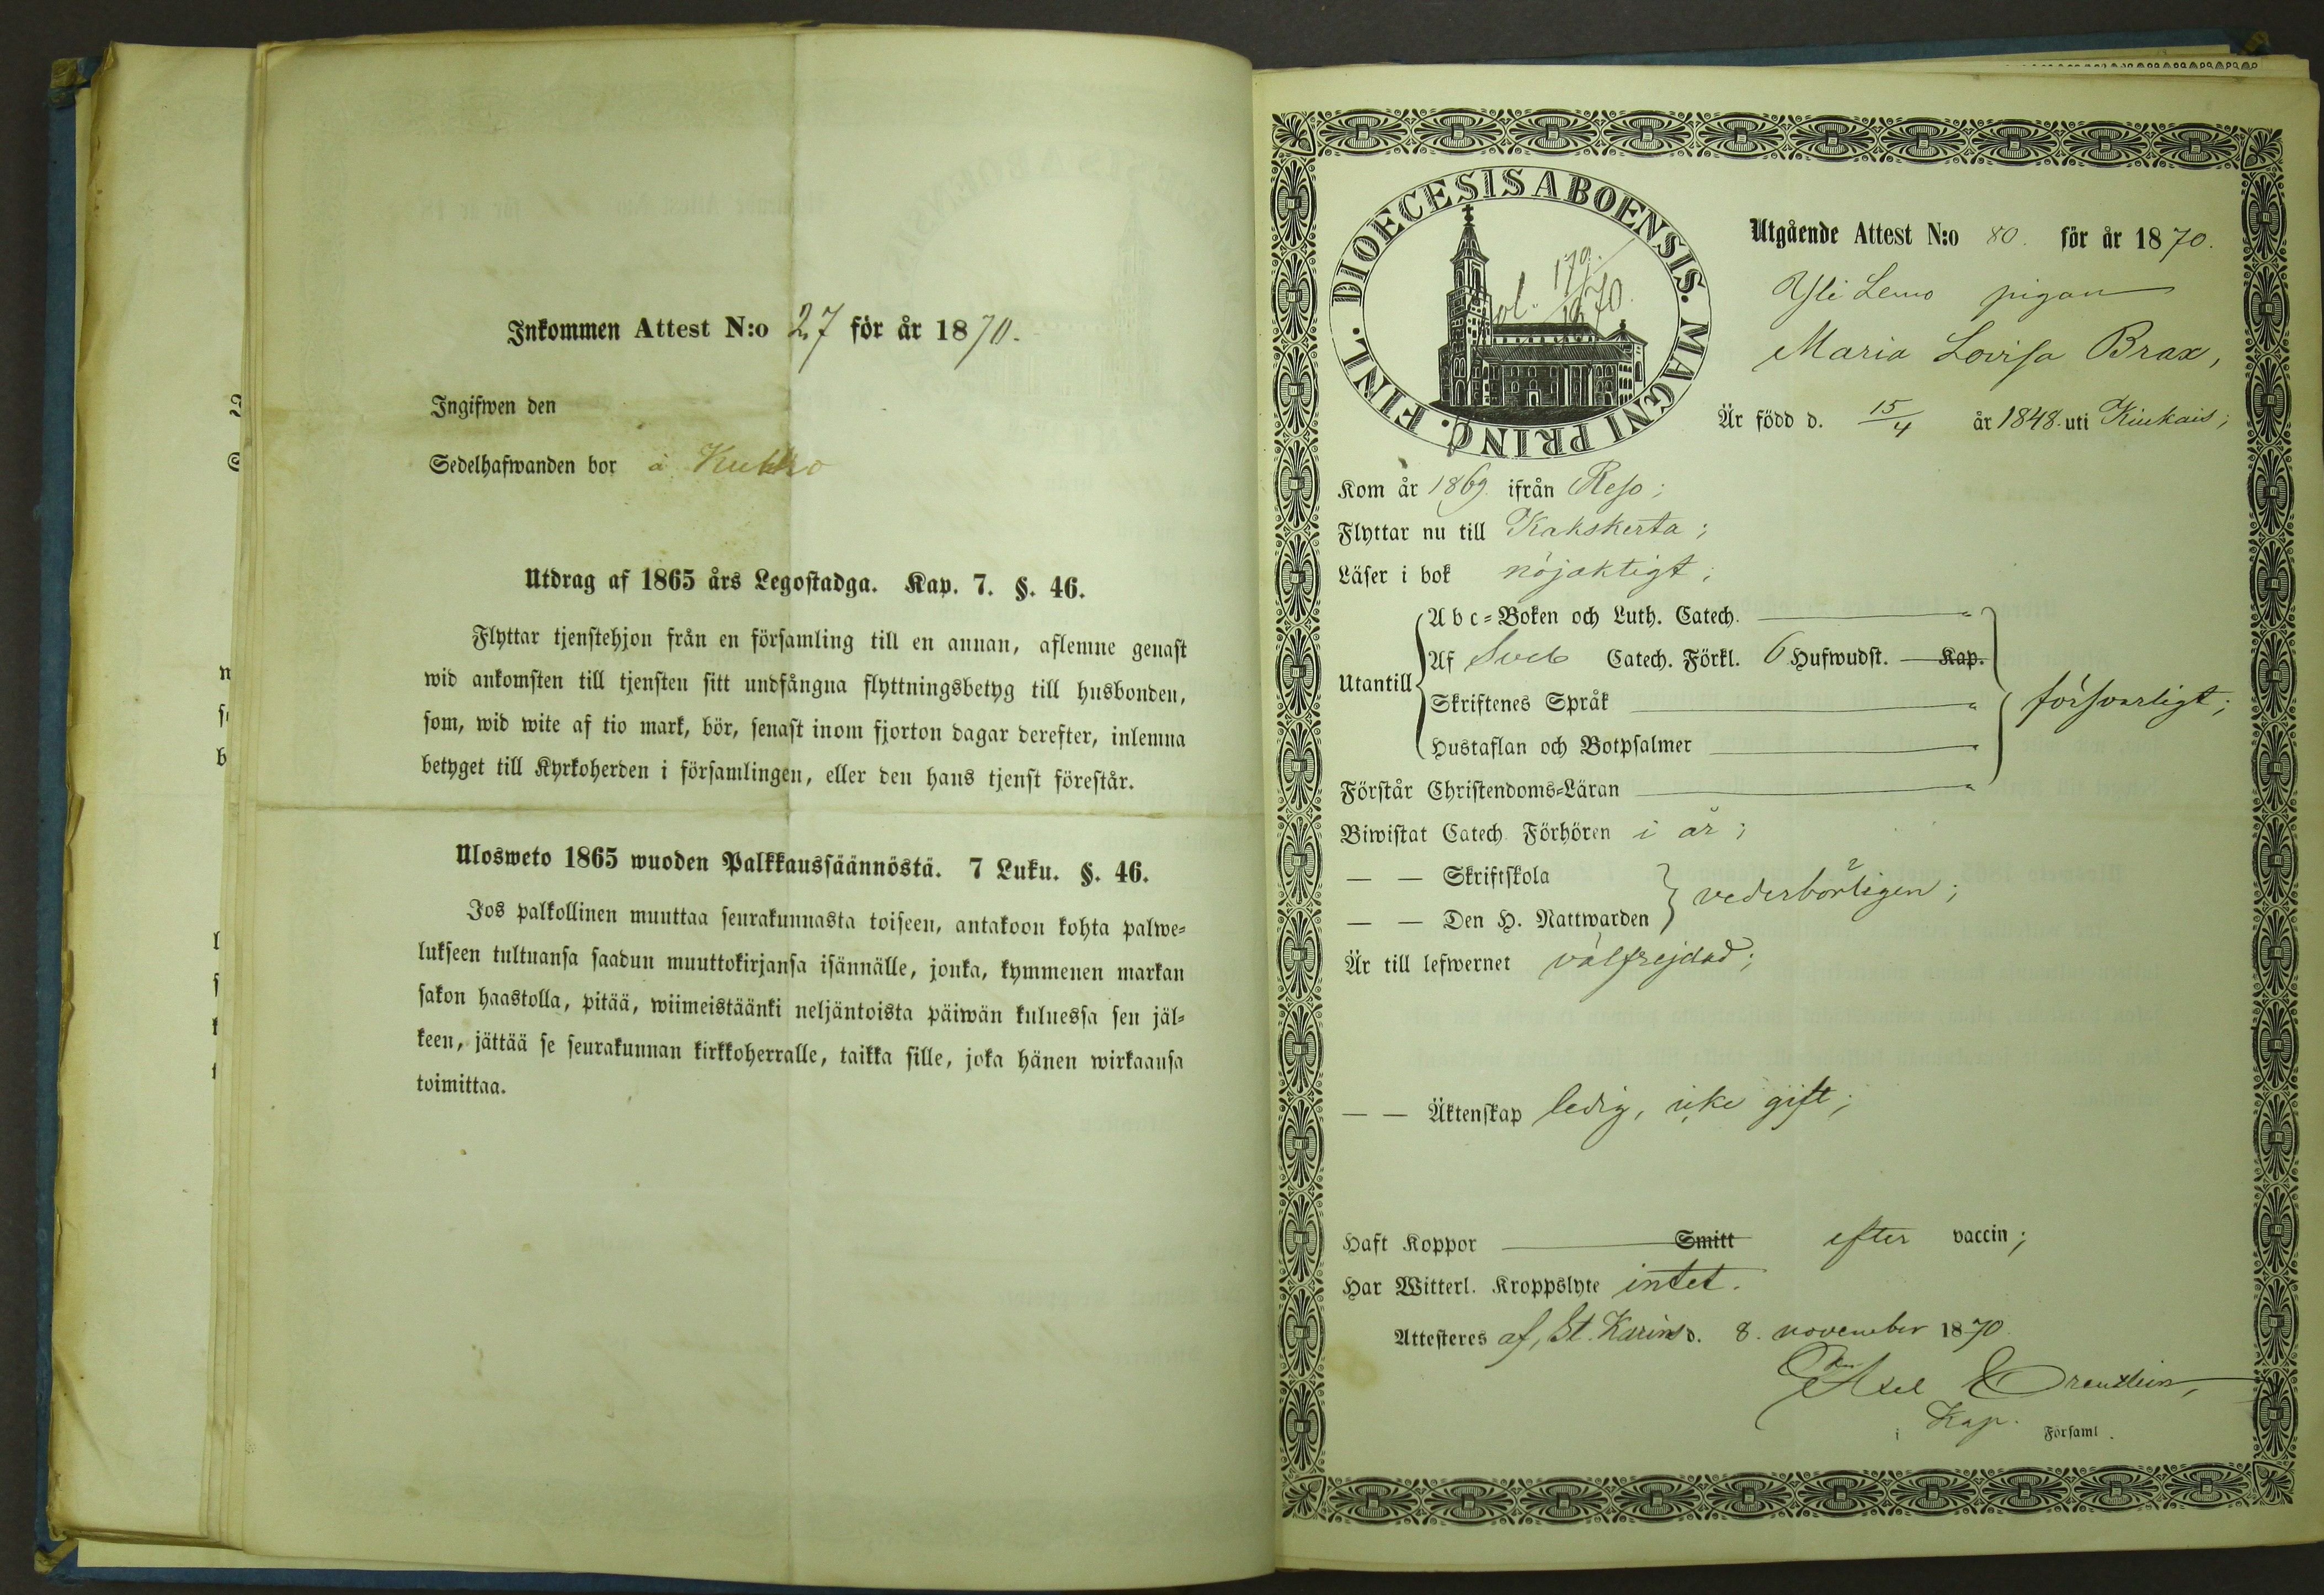 Inkommen Attest N:o 27 för år 1870.
Ingifwen den
Sedelhafwanden bor å
Utdrag af 1865 års Legostadga. Kap. 7. §. 46.
Flyttar tjenstehjon från en församling till en annan, aflemne genast
wid ankomsten till tjensten sitt undfångna flyttningsbetyg till husbonden,
som, wid wite af tio mark, bör, senast inom fjorton dagar derefter, inlemna
betyget till Kyrkoherden i församlingen, eller den hans tjenst förestår.
Ulosweto 1865 wuoden Palkkaussäännöstä. 7 Luku. §. 46.
Jos palkollinen muuttaa seurakunnasta toiseen, antakoon kohta palwe=
lukseen tultuansa saadun muuttokirjansa isännälle, jonka, kymmenen markan
sakon haastolla, pitää, wiimeistäänki neljäntoista päiwän kuluessa sen jäl=
keen, jättää se seurakunnan kirkkoherralle, taikka sille, joka hänen wirkaansa
toimittaa.
DIOECESIS ABOENSIS. MAGNI PRINC. FINL.
fol. 170.
1870.
Utgående Attest N:o 80. för år 1870.
Yli Lemo pigan
Maria Lovisa Brax,
Är född d. 15/4 år 1848. uti Kiukais;
Kom år 1869. ifrån Reso;
Flyttar nu till Kakskerta;
Läser i bok nöjaktigt;
Utantill
Abc=Boken och Luth. Catech. "
Af Sveb Catech. Förkl. 6 Hufwudst. Kap.
Skriftenes Språk "
Hustaflan och Botpsalmer "
försvarligt;
Förstår Christendoms=Läran "
Biwistat Catech. Förhören i år;
— — Skriftskola
— — Den H. Nattwarden
vederbörligen;
Är till lefwernet välfrejdad;
— — Äktenskap ledig, icke gift;
Haft Koppor Smitt efter vaccin;
Har Witterl. Kroppslyte intet.
Attesteres af, St. Karins d. 8. november 1870
Axel
Kap.
i Församl.